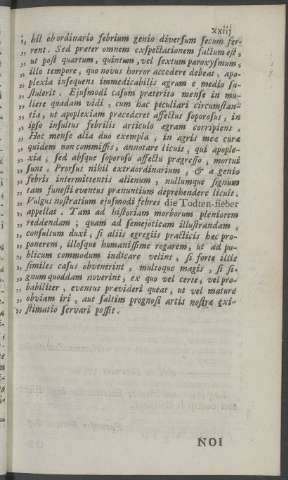 xxiij
„ hil ab ordinario febrium genio diversum secum fer-
„ rent. Sed præter omnem exspectationem factum est,
„ ut post quartum, quintum, vel sextum paroxysmum,
„ illo tempore, quo novus horror accedere debeat, apo-
„ plexia insequens immedicabilis ægram e medio su-
„ stulerit. Ejusmodi casum præterito mense in mu-
„ liere quadam vidi, cum hac peculiari circumstan-
„ tia, ut apoplexiam præcederet affectus soporosus, in
„ ipso insultus febrilis articulo ægram corripiens.
„ Hoc mense alia duo exempla, in ægris meæ curæ
„ quidem non commissis, annotare licuit, qui apople-
„ xia, sed absque soporoso affectu prægresso, mortui
„ sunt. Prorsus nihil extraordinarium, & a genio
„ febris intermittentis alienum, nullumque signum
„ tam funesti eventus prænuntium deprehendere licuit.
„ Vulgus nostratium ejusmodi febres die Todten-fieber
„ appellat. Tam ad historiam morborum pleniorem
„ reddendam; quam ad semejoticam illustrandam,
„ consultum duxi, si aliis egregiis practicis hæc pro-
„ ponerem, illosque humanissime rogarem, ut ad pu-
„ blicum commodum indicare velint, si forte illis
„ similes casus obvenerint, multoque magis, si si-
„ gnum quoddam noverint, ex quo vel certe, vel pro-
„ babiliter, eventus prævideri queat, ut vel mature
„ obviam iri, aut saltim prognosi artis nostræ exi-
„ stimatio servari possit.
NOI